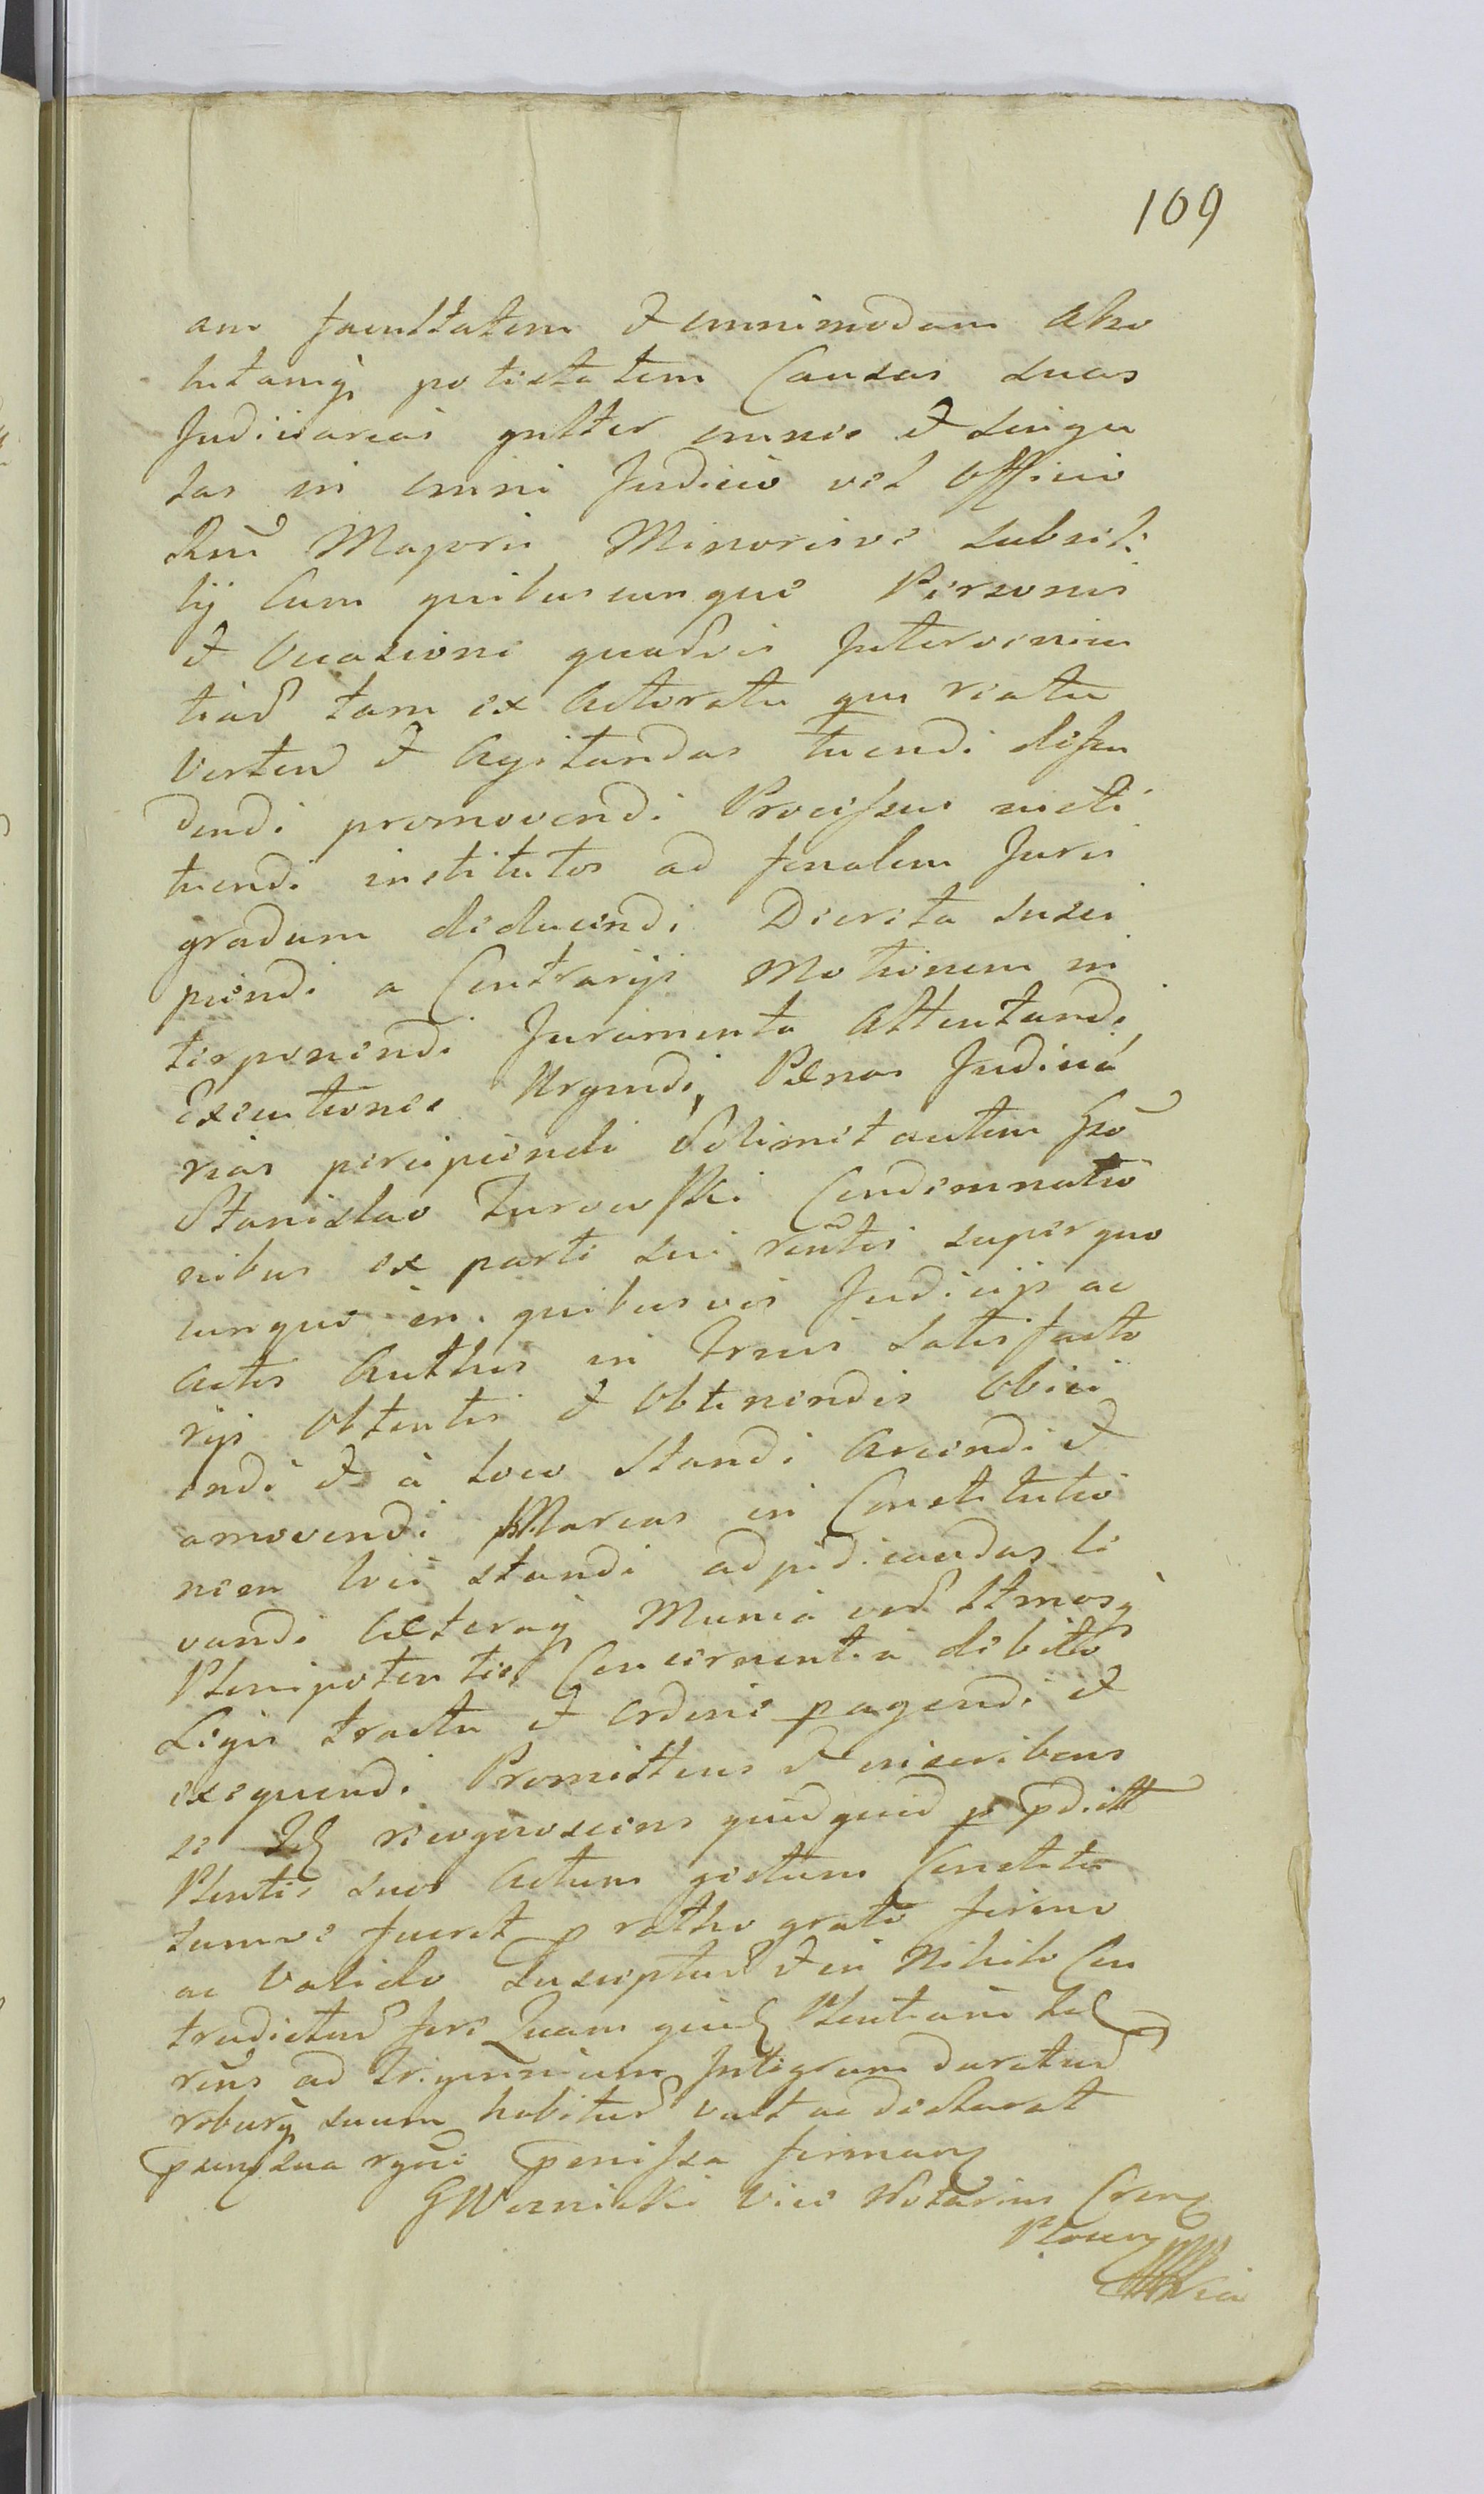 109
am facultatem et omnimodam abso
lutamq̀ potestatem Causas suas
Judiciarias gnlter omnes et singu
las in omni Judicio vel Officio
Rni Majoris Minorisve subsel
lij Cum quibuscunque Personis
et Occasione quavis Intervenien
tiad tam ex Actoratu qm reatu
Verten et Agitandas tuendi defen
dendi promovendi Processus insti
tuendi institutos ad finalem Juris
gradum deducendi Decreta susci
piendi a Contrarijs Motionem in
terponendi Juramenta Attentandi
Executiones Urgendi, Pænas Judicia
rias percipiendi Solimet autem Gso
Stanislao Turowski Condemnatio
nibus ex parte sui rentis super quo
cunque in quibusvis Judicijs ac
Actis Authis in Trnis Satisfacto
rijs Obtentis et Obtinendis Obici
endi et à loco Standi Arcendi et
amovendi Marcas in Constitutio
nem loci standi adpedicandas le
vandi Cæteraq̀ Munia vod Ilmosq̀
Plenipotentes Concernentia debito
Legis tractu et ordine pagendi et
exequendi Promittens et inscribens
se Idq recognoscens quidquid p pdictt
Plentes suos Actum gestum Constitu
tumve fuerit p ratho grato firmo
ac Valido Suscipturd et in Nihilo Con
tradicturd fore Quam quidq Plentiam Idq
rens ad Trigennium Integrum duraturd
roburq̀ suum habiturd vult ac declarat
psenq sua rgni penissa firmanq
GWernicki Vice Notarius Crenq
Plocen